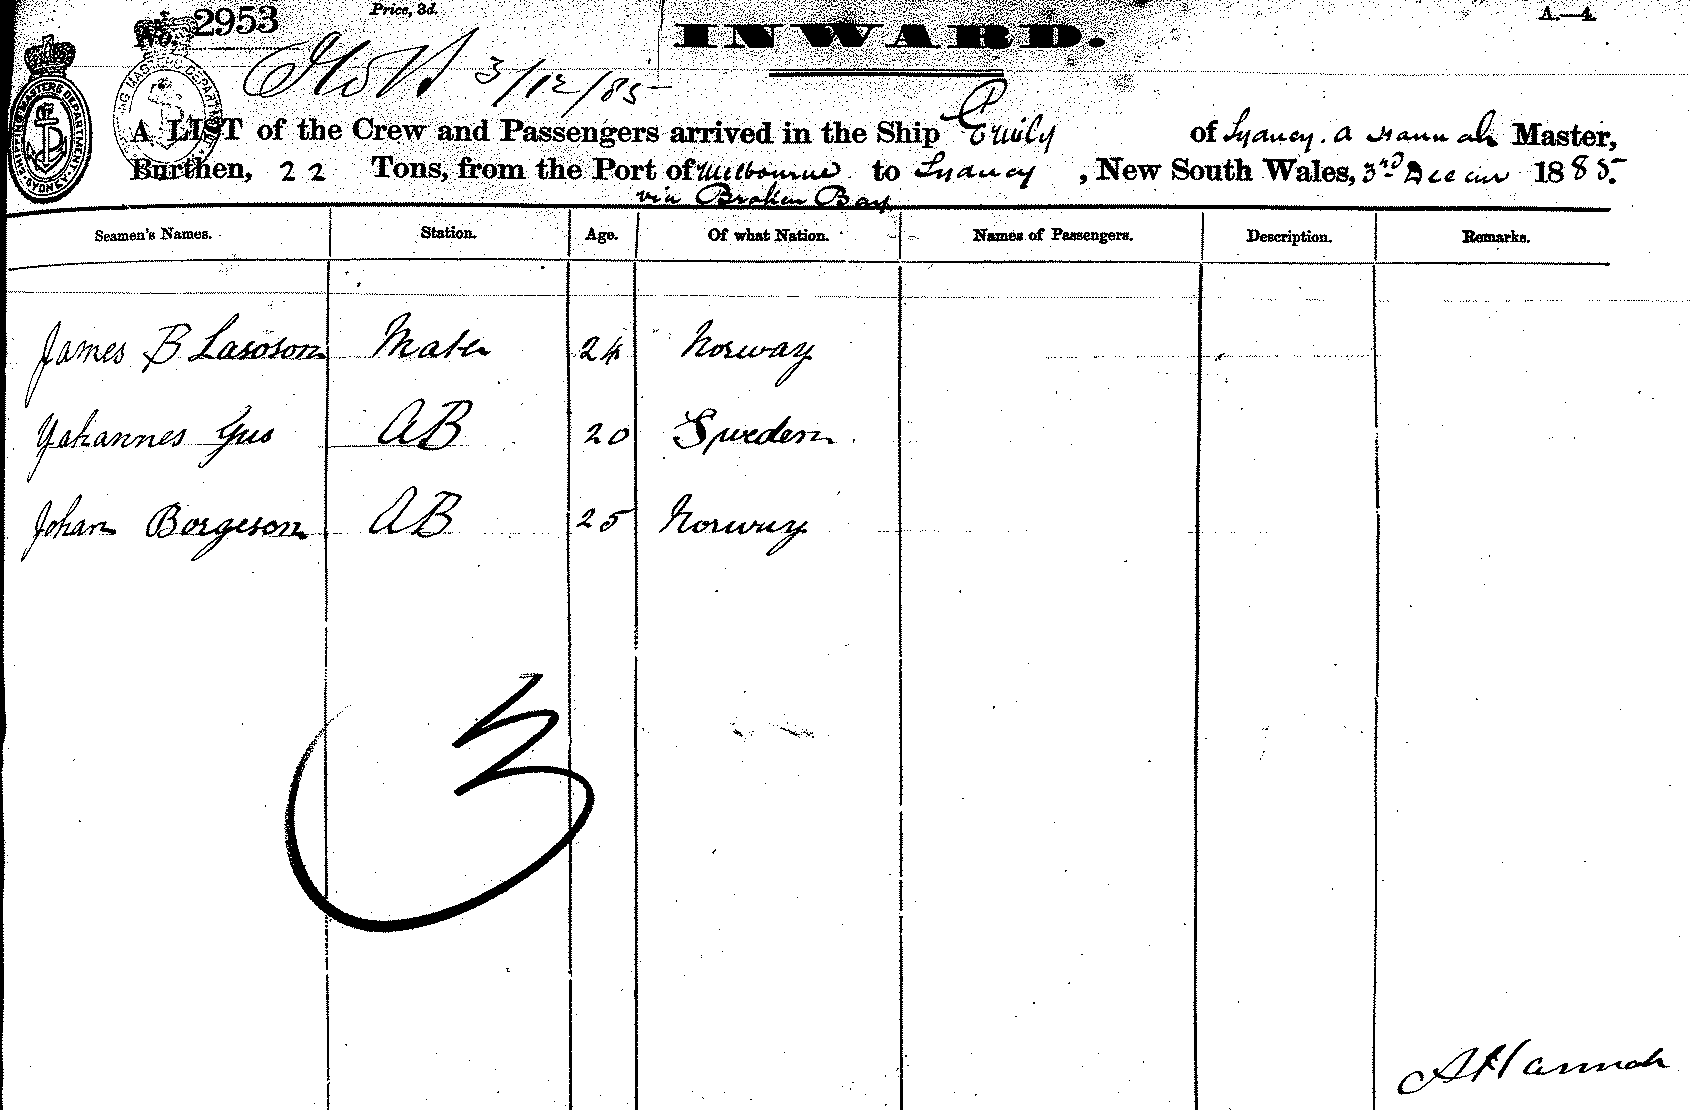 No. 2953
Price, 3d.
INWARD.
A.—4.
3/12/85
A LIST of the Crew and Passengers arrived in the Ship Emily of Sydney. A Hannah Master,
Burthen, 22 Tons, from the Port of Melbourne to Sydney, New South Wales, 3rd Decem 1885.
via Broken Bay
Seamen's Names. Station. Age. Of what Nation. Names of Passengers. Description. Remarks.
James B Lasoson Mate 24 Norway
Yohannes Gus AB 20 Swedern
Johan Borgeson AB 25 Norway
3
A Hannah